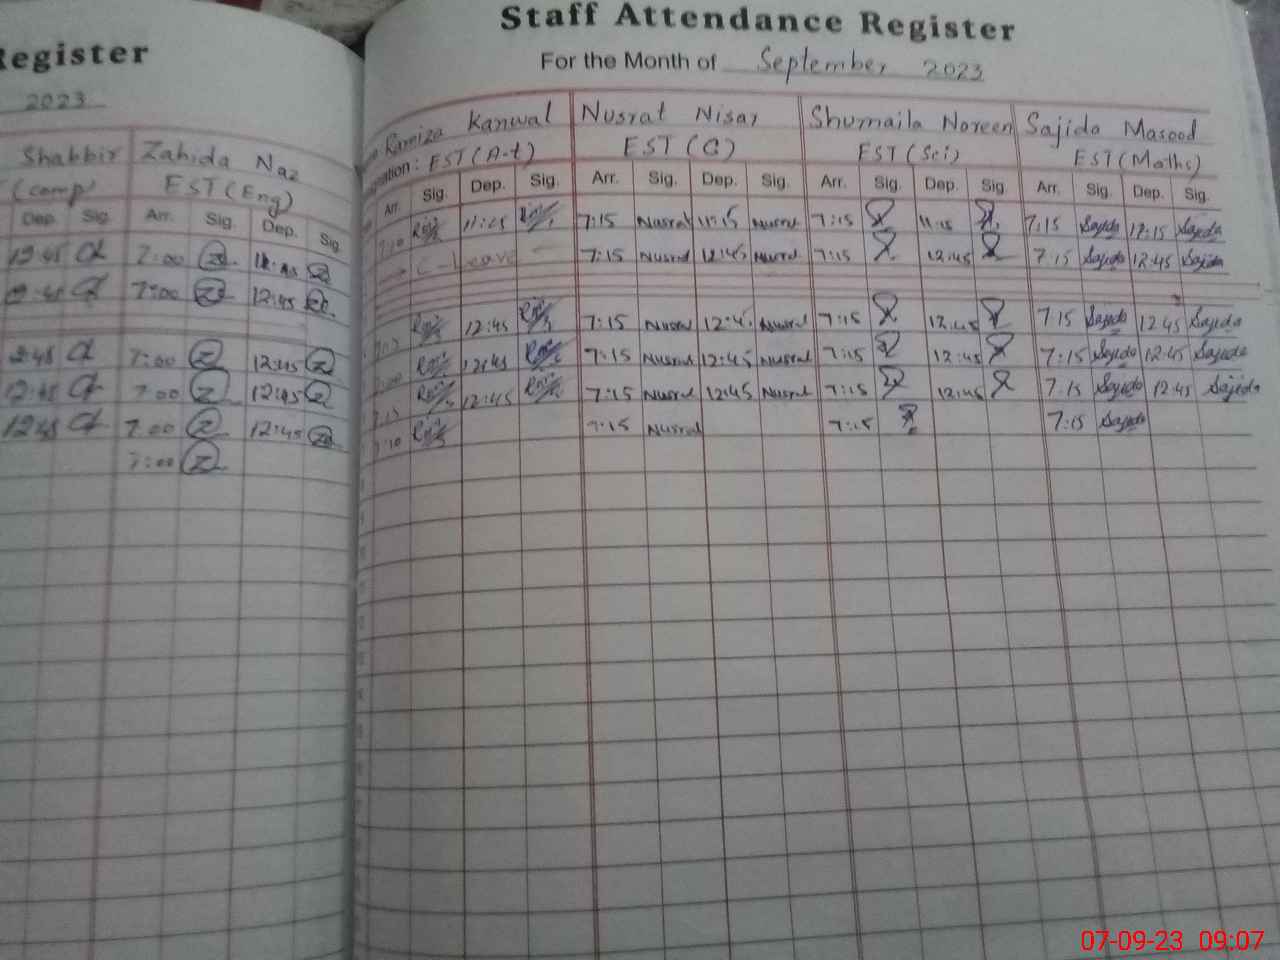 Register
2023
Shabbir Zahida Naz
(comp) EST (Eng)
Dep. Sig. Arr. Sig. Dep. Sig.
12:45 7:00 12:45
12:45 7:00 12:45
12:45 7:00 12:45
12:45 7:00 12:45
12:45 7:00 12:45
7:00
Staff Attendance Register
For the Month of September 2023
Ramiza Kanwal Nusrat Nisar Shumaila Noreen Sajida Masood
EST (A-t) EST (G) EST (Sci) EST (Maths)
Arr. Sig. Dep. Sig. Arr. Sig. Dep. Sig. Arr. Sig. Dep. Sig. Arr. Sig. Dep. Sig.
7:10 11:15 7:15 Nusrat 11:15 Nusrat 7:15 11:15 7:15 Sajida 11:15 Sajida
C-Leave 7:15 Nusrat 12:45 Nusrat 7:15 12:45 7:15 Sajida 12:45 Sajida
12:45 7:15 Nusrat 12:45 Nusrat 7:15 12:45 7:15 Sajida 12:45 Sajida
12:45 7:15 Nusrat 12:45 Nusrat 7:15 12:45 7:15 Sajida 12:45 Sajida
7:15 12:45 7:15 Nusrat 12:45 Nusrat 7:15 12:45 7:15 Sajida 12:45 Sajida
7:10 7:15 Nusrat 7:15 7:15 Sajida
07-09-23 09:07